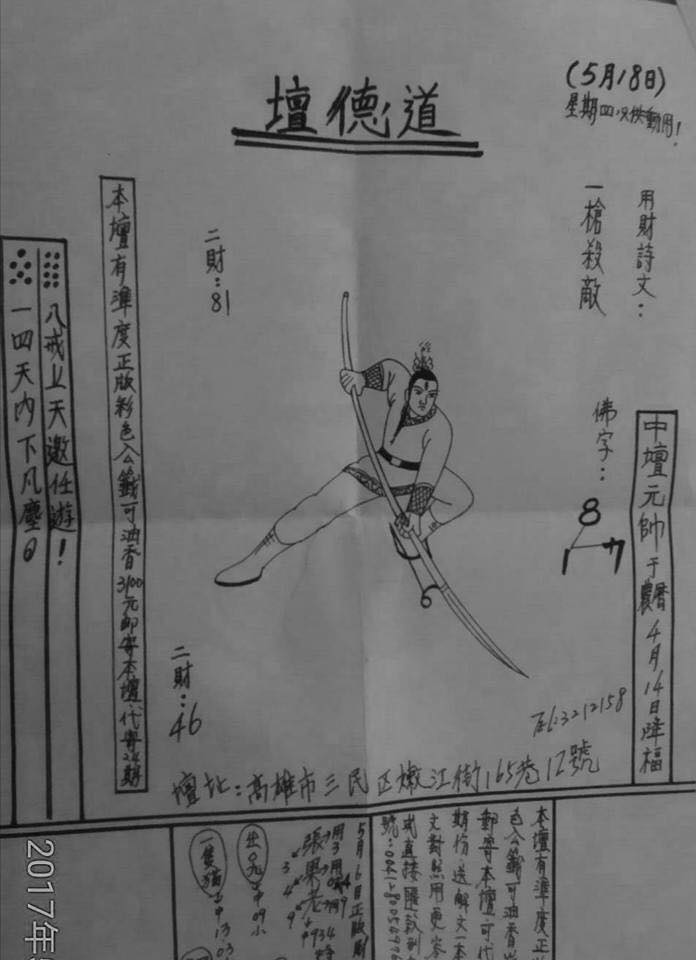 道德壇
(5月18日)
星期四次供動用!
用財詩文：
一槍殺敵
佛字：
8
1 7
中壇元帥于農曆4月14日降福
二財：81
本壇有準度正版彩色入公籤可油香3100元郵寄本壇代寄24期
八戒上天遨任遊！
一四天內下凡塵。
二財：46
6
Tel:3212158
壇址：高雄市三民區嫩江街165巷12號
本壇有準度正
色入公籤可油香
郵寄本壇可代
期份送解文一本
文對照用更
或直接匯款到
號：0041
5月6日正版財
張果老
3 4 9
坐0九 中09
一隻貓 中13 03
2017年